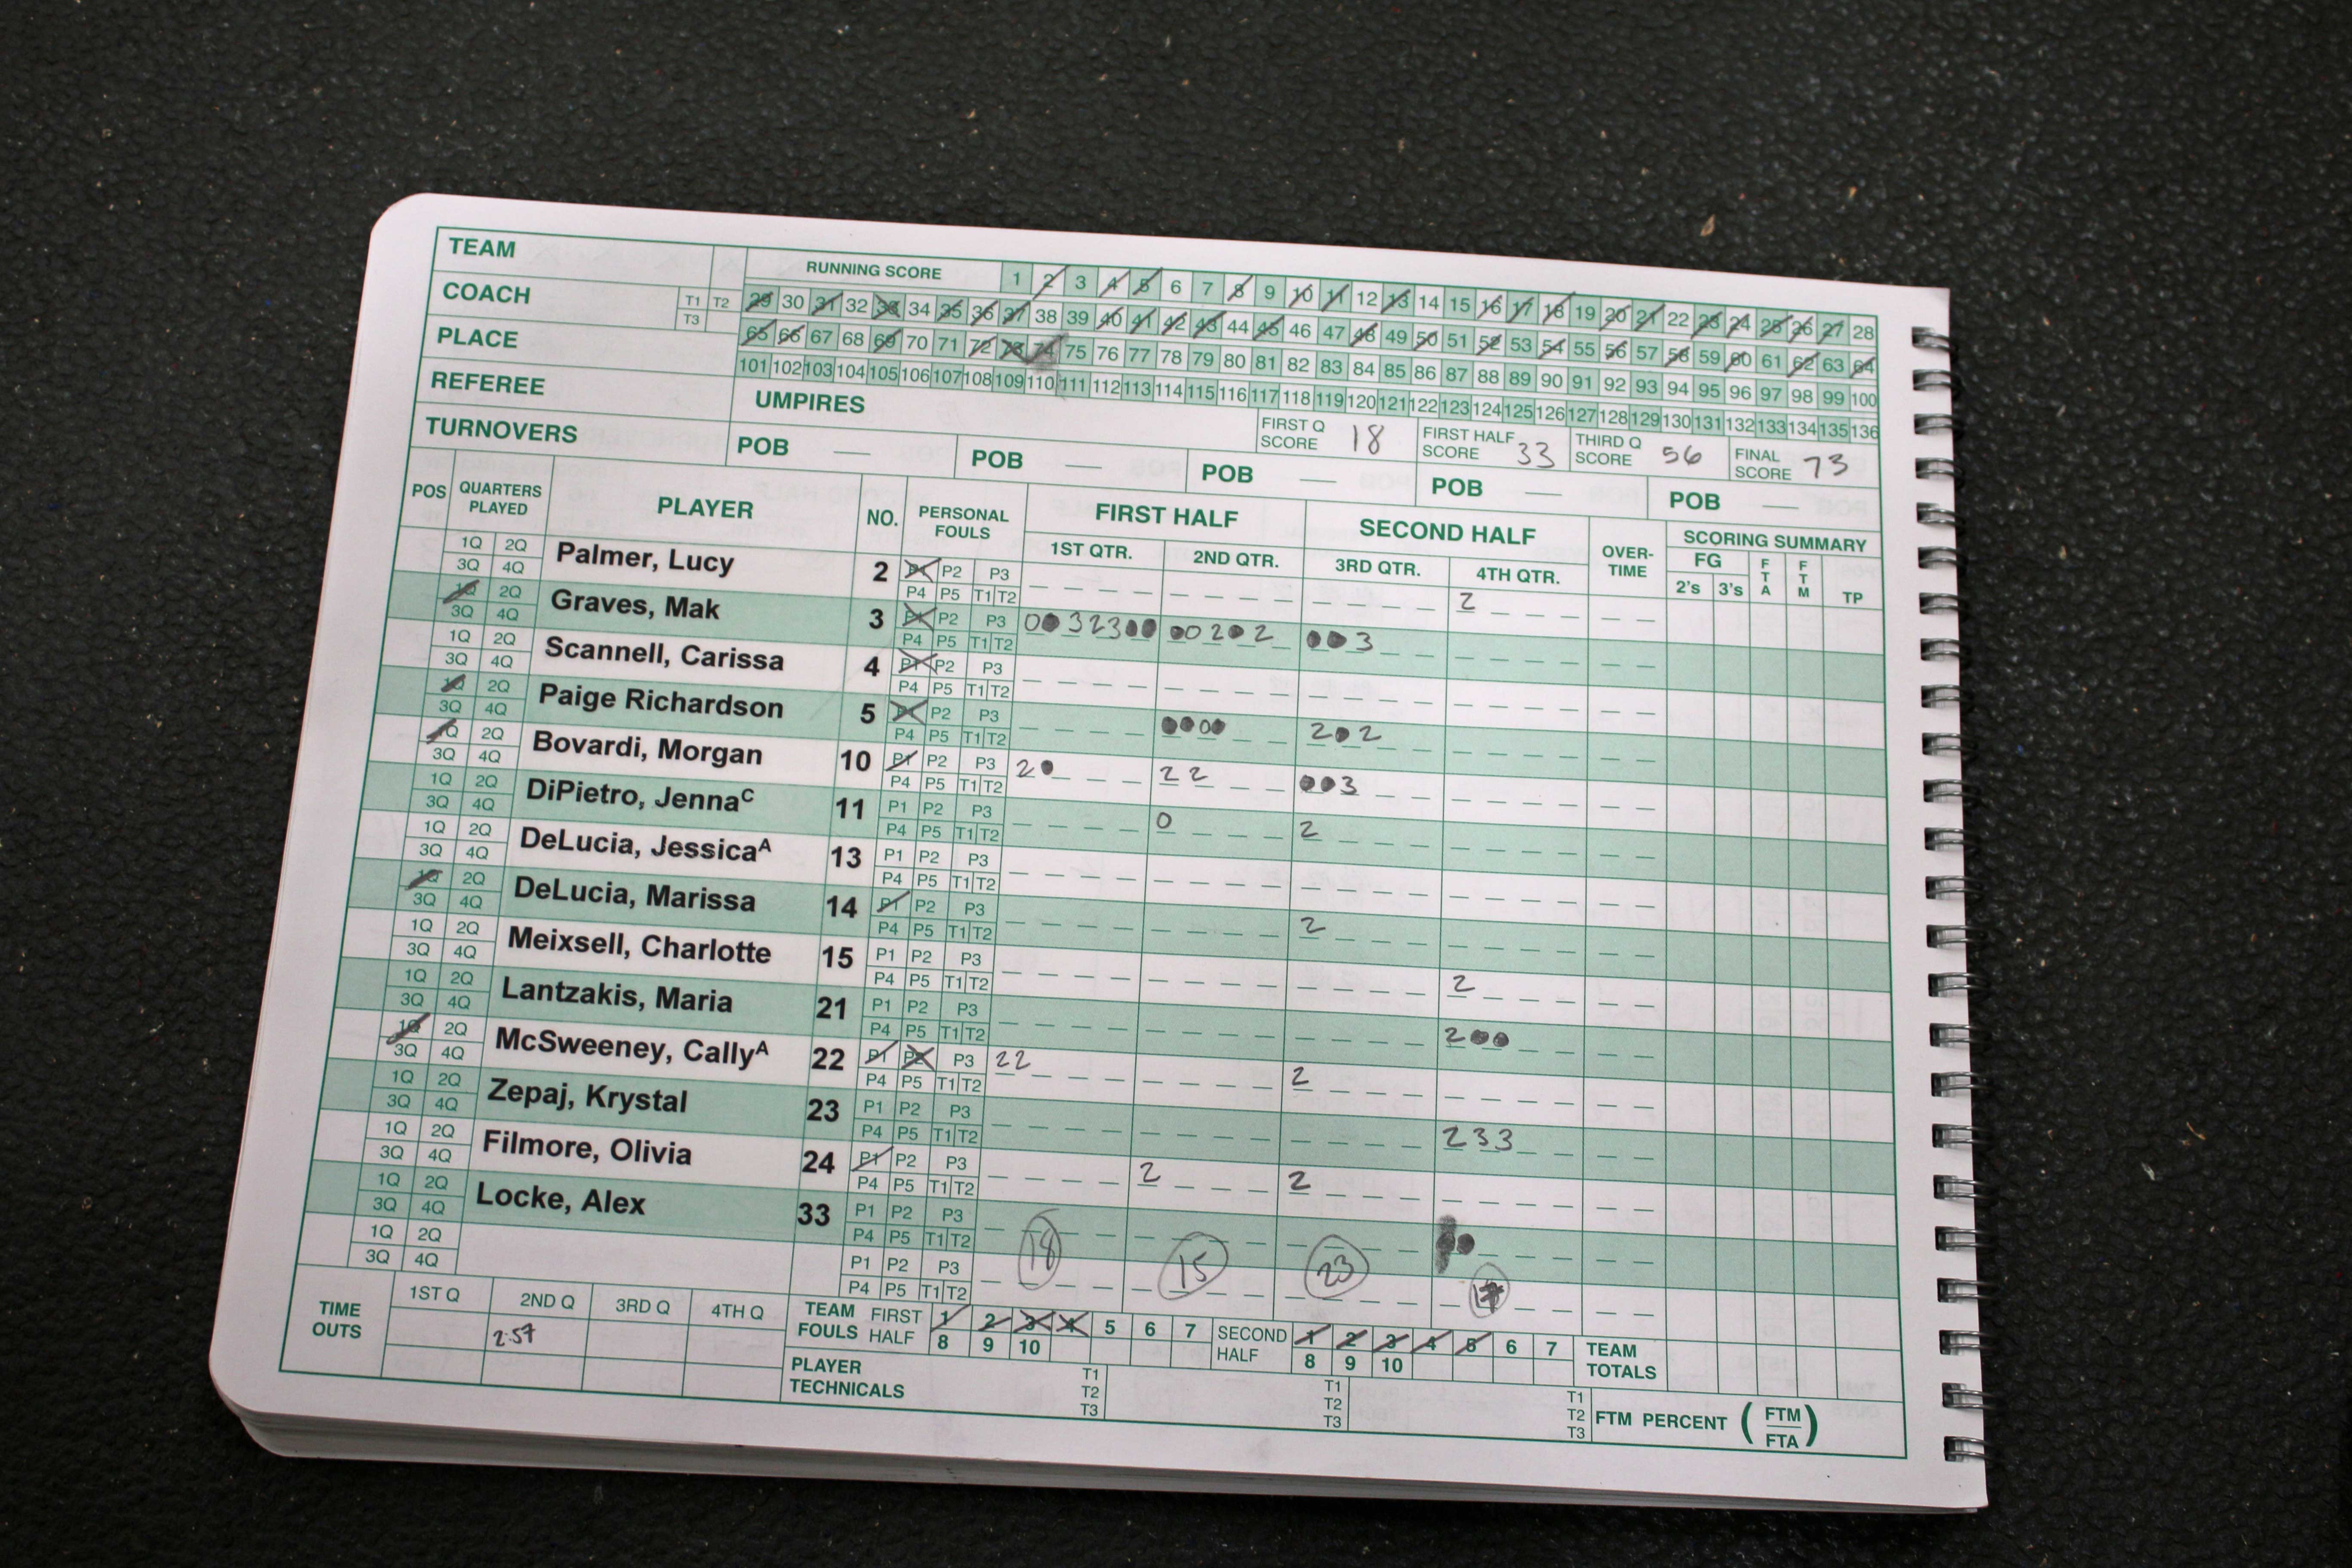 TEAM
RUNNING SCORE 1 2 3 4 5 6 7 8 9 10 11 12 13 14 15 16 17 18 19 20 21 22 23 24 25 26 27 28
COACH T1 T2 T3
29 30 31 32 33 34 35 36 37 38 39 40 41 42 43 44 45 46 47 48 49 50 51 52 53 54 55 56 57 58 59 60 61 62 63 64
PLACE
65 66 67 68 69 70 71 72 73 74 75 76 77 78 79 80 81 82 83 84 85 86 87 88 89 90 91 92 93 94 95 96 97 98 99 100
101 102 103 104 105 106 107 108 109 110 111 112 113 114 115 116 117 118 119 120 121 122 123 124 125 126 127 128 129 130 131 132 133 134 135 136
REFEREE
UMPIRES
FIRST Q SCORE 18 FIRST HALF SCORE 33 THIRD Q SCORE 56 FINAL SCORE 73
TURNOVERS POB — POB — POB — POB — POB —
POS QUARTERS PLAYED PLAYER NO. PERSONAL FOULS FIRST HALF SECOND HALF OVER-TIME SCORING SUMMARY
1ST QTR. 2ND QTR. 3RD QTR. 4TH QTR. FG FTA FTM TP
2's 3's
1Q 2Q Palmer, Lucy 2 P1 P2 P3 2
3Q 4Q P4 P5 T1 T2
1Q 2Q Graves, Mak 3 P1 P2 P3 0●323●● ●02●2 ●●3
3Q 4Q P4 P5 T1 T2
1Q 2Q Scannell, Carissa 4 P1 P2 P3
3Q 4Q P4 P5 T1 T2
1Q 2Q Paige Richardson 5 P1 P2 P3 ●●0● 2●2
3Q 4Q P4 P5 T1 T2
1Q 2Q Bovardi, Morgan 10 P1 P2 P3 2● 22 ●●3
3Q 4Q P4 P5 T1 T2
1Q 2Q DiPietro, Jenna C 11 P1 P2 P3 0 2
3Q 4Q P4 P5 T1 T2
1Q 2Q DeLucia, Jessica A 13 P1 P2 P3
3Q 4Q P4 P5 T1 T2
1Q 2Q DeLucia, Marissa 14 P1 P2 P3 2
3Q 4Q P4 P5 T1 T2
1Q 2Q Meixsell, Charlotte 15 P1 P2 P3 2
3Q 4Q P4 P5 T1 T2
1Q 2Q Lantzakis, Maria 21 P1 P2 P3 2●●
3Q 4Q P4 P5 T1 T2
1Q 2Q McSweeney, Cally A 22 P1 P2 P3 22 2
3Q 4Q P4 P5 T1 T2
1Q 2Q Zepaj, Krystal 23 P1 P2 P3 233
3Q 4Q P4 P5 T1 T2
1Q 2Q Filmore, Olivia 24 P1 P2 P3 2 2
3Q 4Q P4 P5 T1 T2
1Q 2Q Locke, Alex 33 P1 P2 P3
3Q 4Q P4 P5 T1 T2
1Q 2Q P1 P2 P3 18 15 23 17
3Q 4Q P4 P5 T1 T2
TIME OUTS 1ST Q 2ND Q 3RD Q 4TH Q
2:57
TEAM FOULS FIRST HALF 1 2 3 4 5 6 7 SECOND HALF 1 2 3 4 5 6 7 TEAM TOTALS
8 9 10 8 9 10
PLAYER TECHNICALS T1 T2 T3 T1 T2 T3 T1 T2 T3 FTM PERCENT (FTM/FTA)